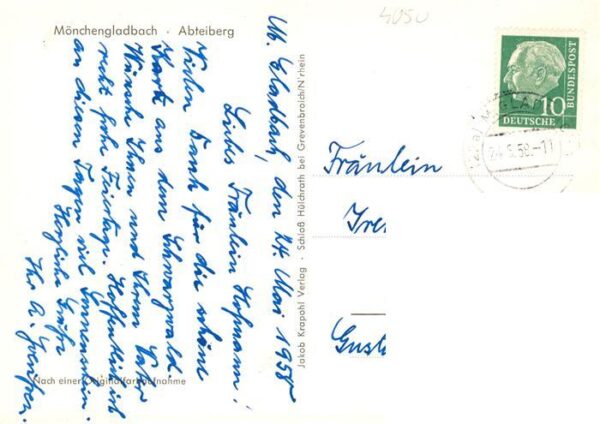 Mönchengladbach · Abteiberg
4050
M. Gladbach, den 24. Mai 1958
Liebes Fräulein Hofmann!
Vielen Dank für die schöne
Karte aus dem Schwarzwald
Wünsche Ihnen und Ihrem Vater
recht frohe Feiertage. Hoffentlich ist
an diesen Tagen viel Sonnenschein.
Herzliche Grüße
Ihr A.
Nach einer Originalfarbaufnahme
Jakob Krapohl Verlag · Schloß Hülchrath bei Grevenbroich/N'rhein
DEUTSCHE
BUNDESPOST
10
24.5.58.-11
Fräulein
Ire
Gust